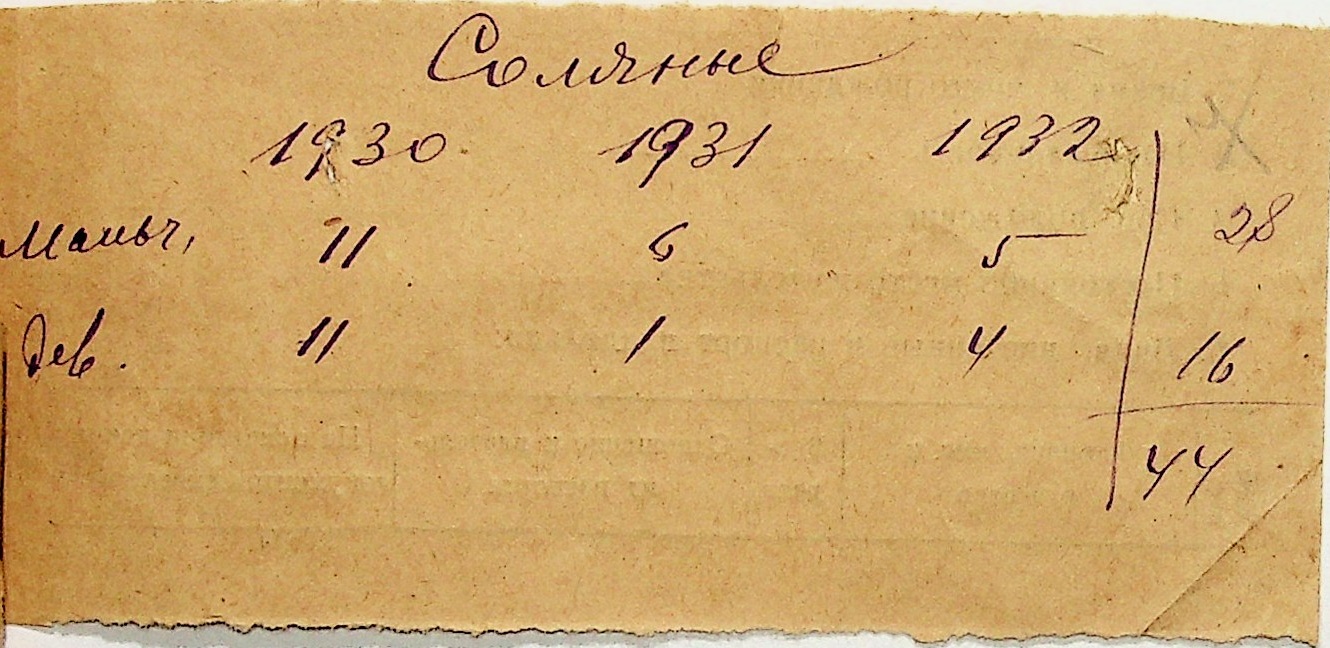 Соляные
1930 1931 1932
Мальч, 11 6 5 28
Дев. 11 1 4 16
44